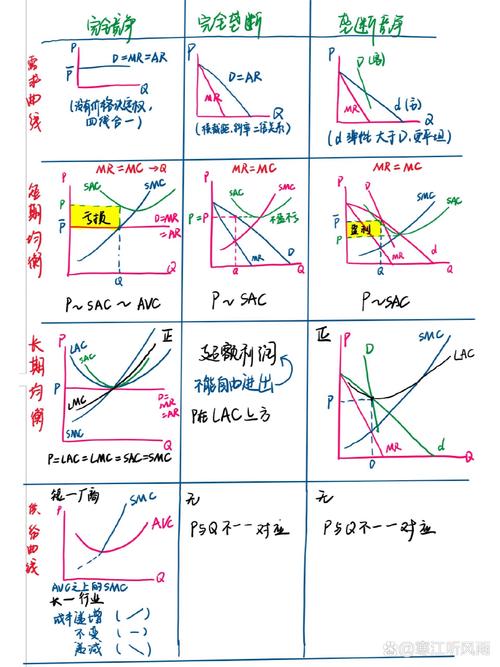 完全竞争
完全垄断
垄断竞争
需求曲线
P
P̄
D=MR=AR
Q
(没有价格决定权,
四线合一)
P
D=AR
MR
Q
P
D
d
MR
Q
(d 弹性大于D,更平坦)
短期均衡
MR=MC→Q
P
SAC
SMC
P̄
亏损
D=MR
=AR
Q
Q
P~SAC~AVC
MR=MC
P
SAC
SMC
P=P
不盈不亏
Q
MR
D
Q
P~SAC
MR=MC
P
D
SMC
SAC
P̄
盈利
Q
MR
d
Q
P~SAC
长期均衡
P
正
LAC
SAC
P
LMC
SMC
D=
MR
=AR
Q
P=LAC=LMC=SAC=SMC
超额利润
不能自由进出
P在LAC上方
正
P
SMC
D
LAC
P
MR
d
Q
供给曲线
短—厂商
P
SMC
AVC
Q
AVC之上的SMC
长—行业
成本递增(／)
不变(—)
递减(＼)
无
P与Q不一一对应
无
P与Q不一一对应
@寒江听风雨